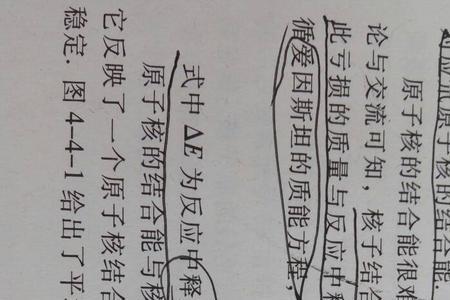 原子核的结合能.
原子核的结合能很难
论与交流可知，核子结合
此亏损的质量与反应中释
循爱因斯坦的质能方程，
式中 ΔE 为反应中释
原子核的结合能与核
它反映了一个原子核结合
稳定. 图 4-4-1 给出了平